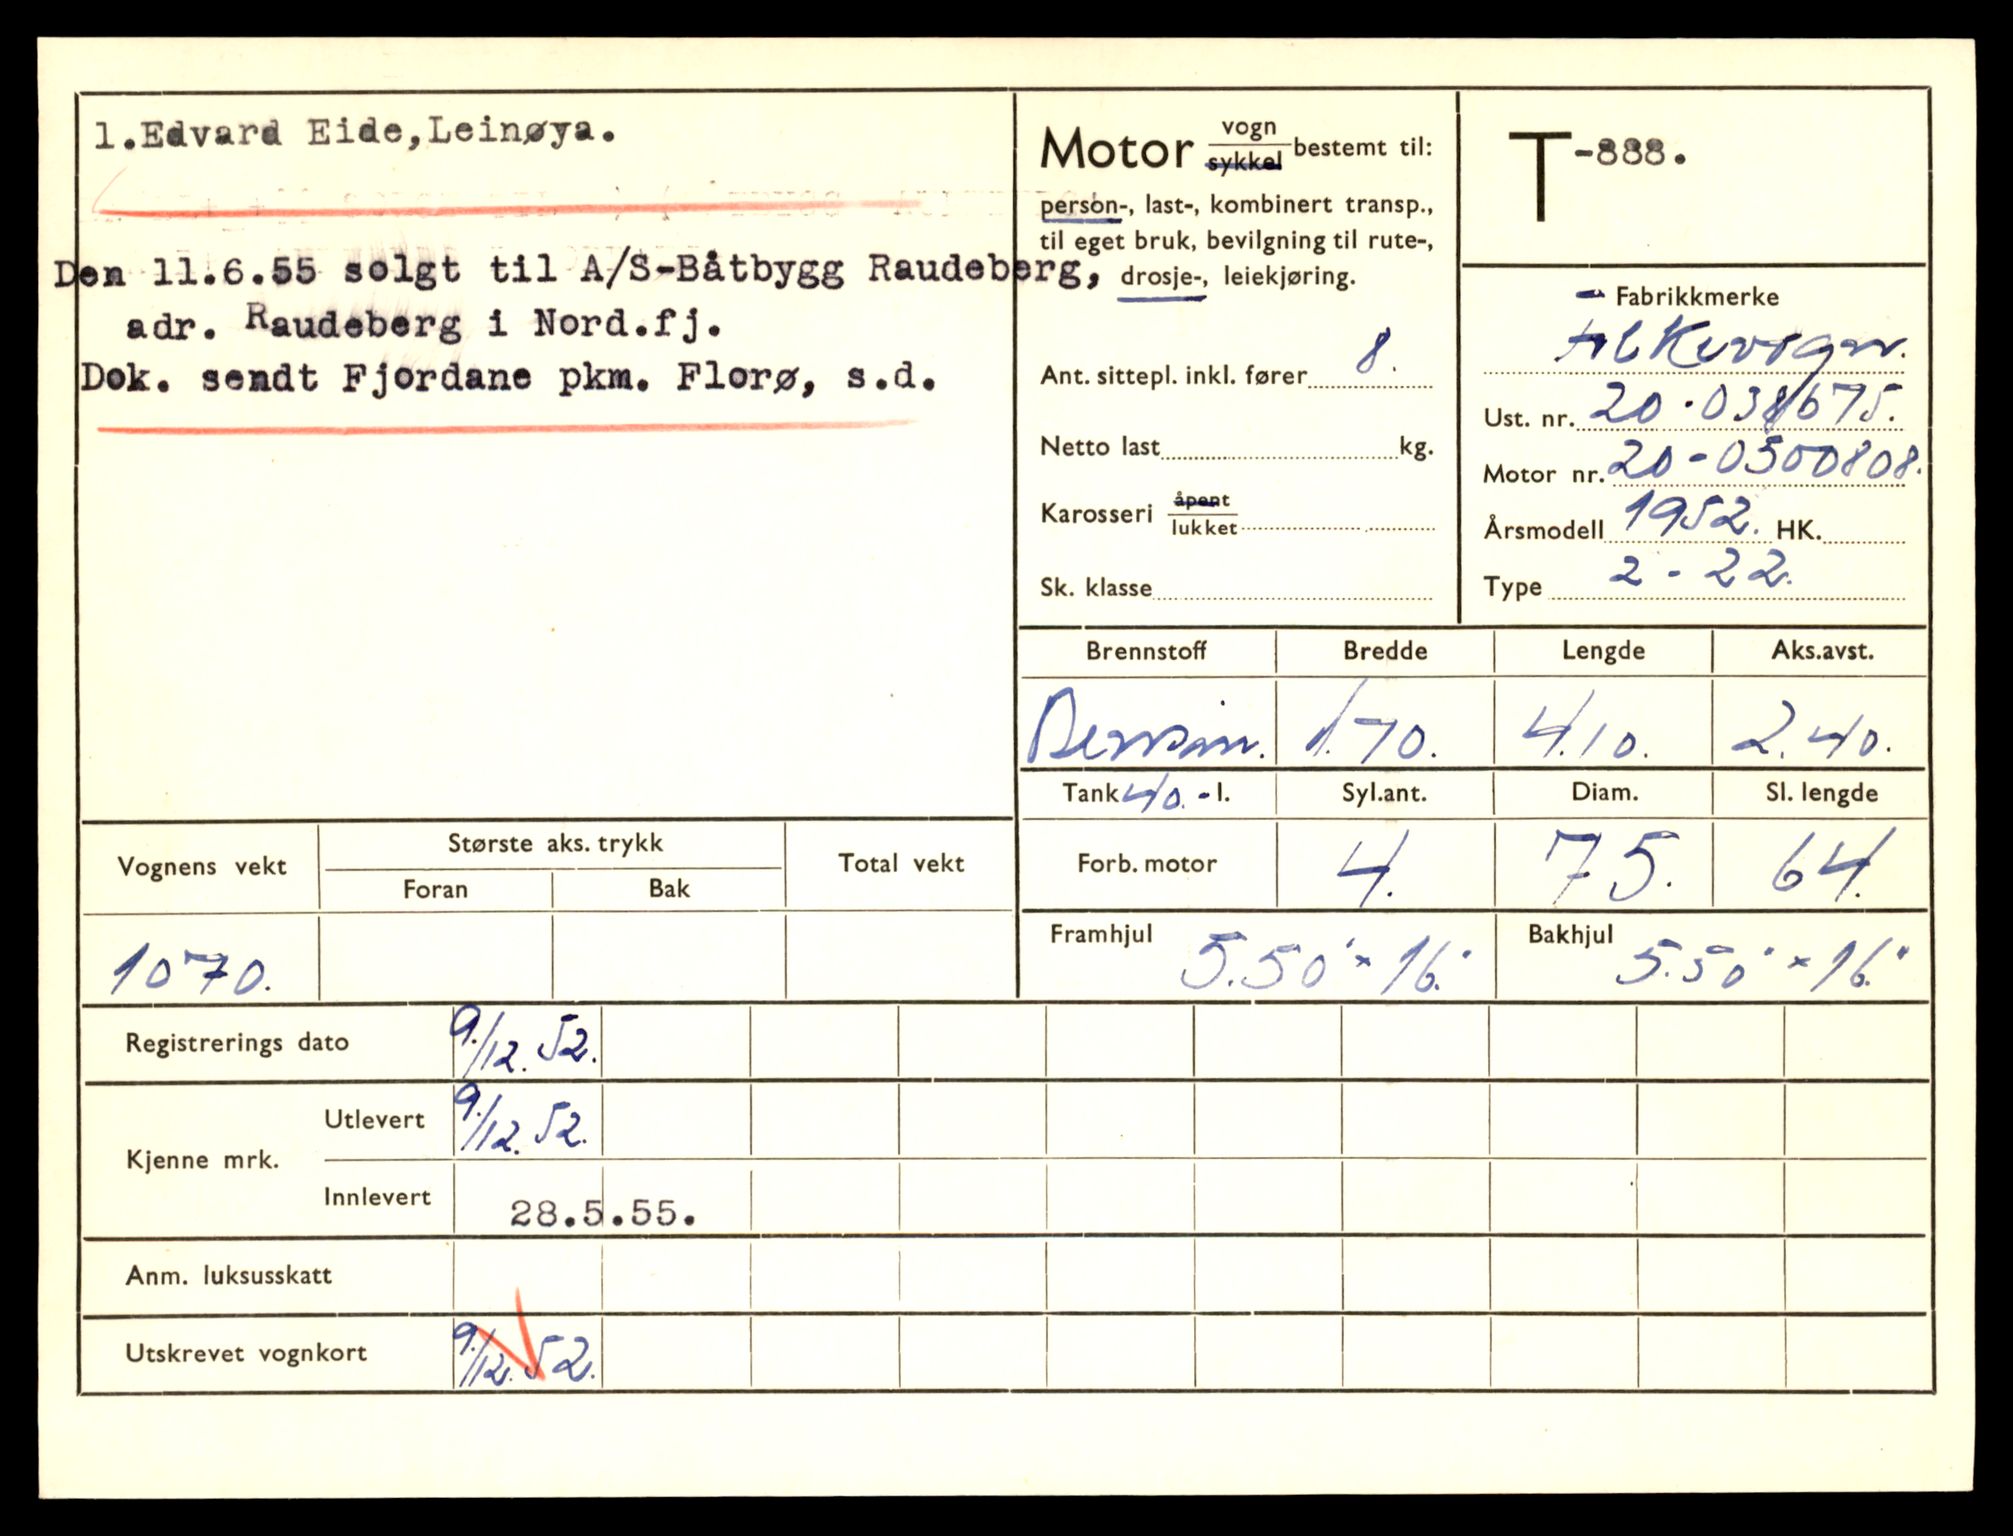 1.Edvard Eide,Leinøya.
Den 11.6.55 solgt til A/S-Båtbygg Raudeberg,
adr. Raudeberg i Nord.fj.
Dok. sendt Fjordane pkm. Florø, s.d.
Motor vogn
sykkel bestemt til:
person-, last-, kombinert transp.,
til eget bruk, bevilgning til rute-,
drosje-, leiekjøring.
Ant. sittepl. inkl. fører 8.
Netto last kg.
Karosseri åpent
lukket
Sk. klasse
T-888.
Fabrikkmerke
Folkevogn.
Ust. nr. 20-038675.
Motor nr. 20-0300808.
Årsmodell 1952. HK.
Type 2-22.
Brennstoff Bredde Lengde Aks.avst.
Bensin. 1.70. 4.10. 2.40.
Tank 40.-l. Syl.ant. Diam. Sl. lengde
Forb. motor 4. 75. 64.
Framhjul 5.50"×16." Bakhjul 5.50"×16."
Vognens vekt Største aks. trykk Total vekt
Foran Bak
1070.
Registrerings dato 9./12. 52.
Kjenne mrk. Utlevert 9./12. 52.
Innlevert 28.5.55.
Anm. luksusskatt
Utskrevet vognkort 9./12. 52.